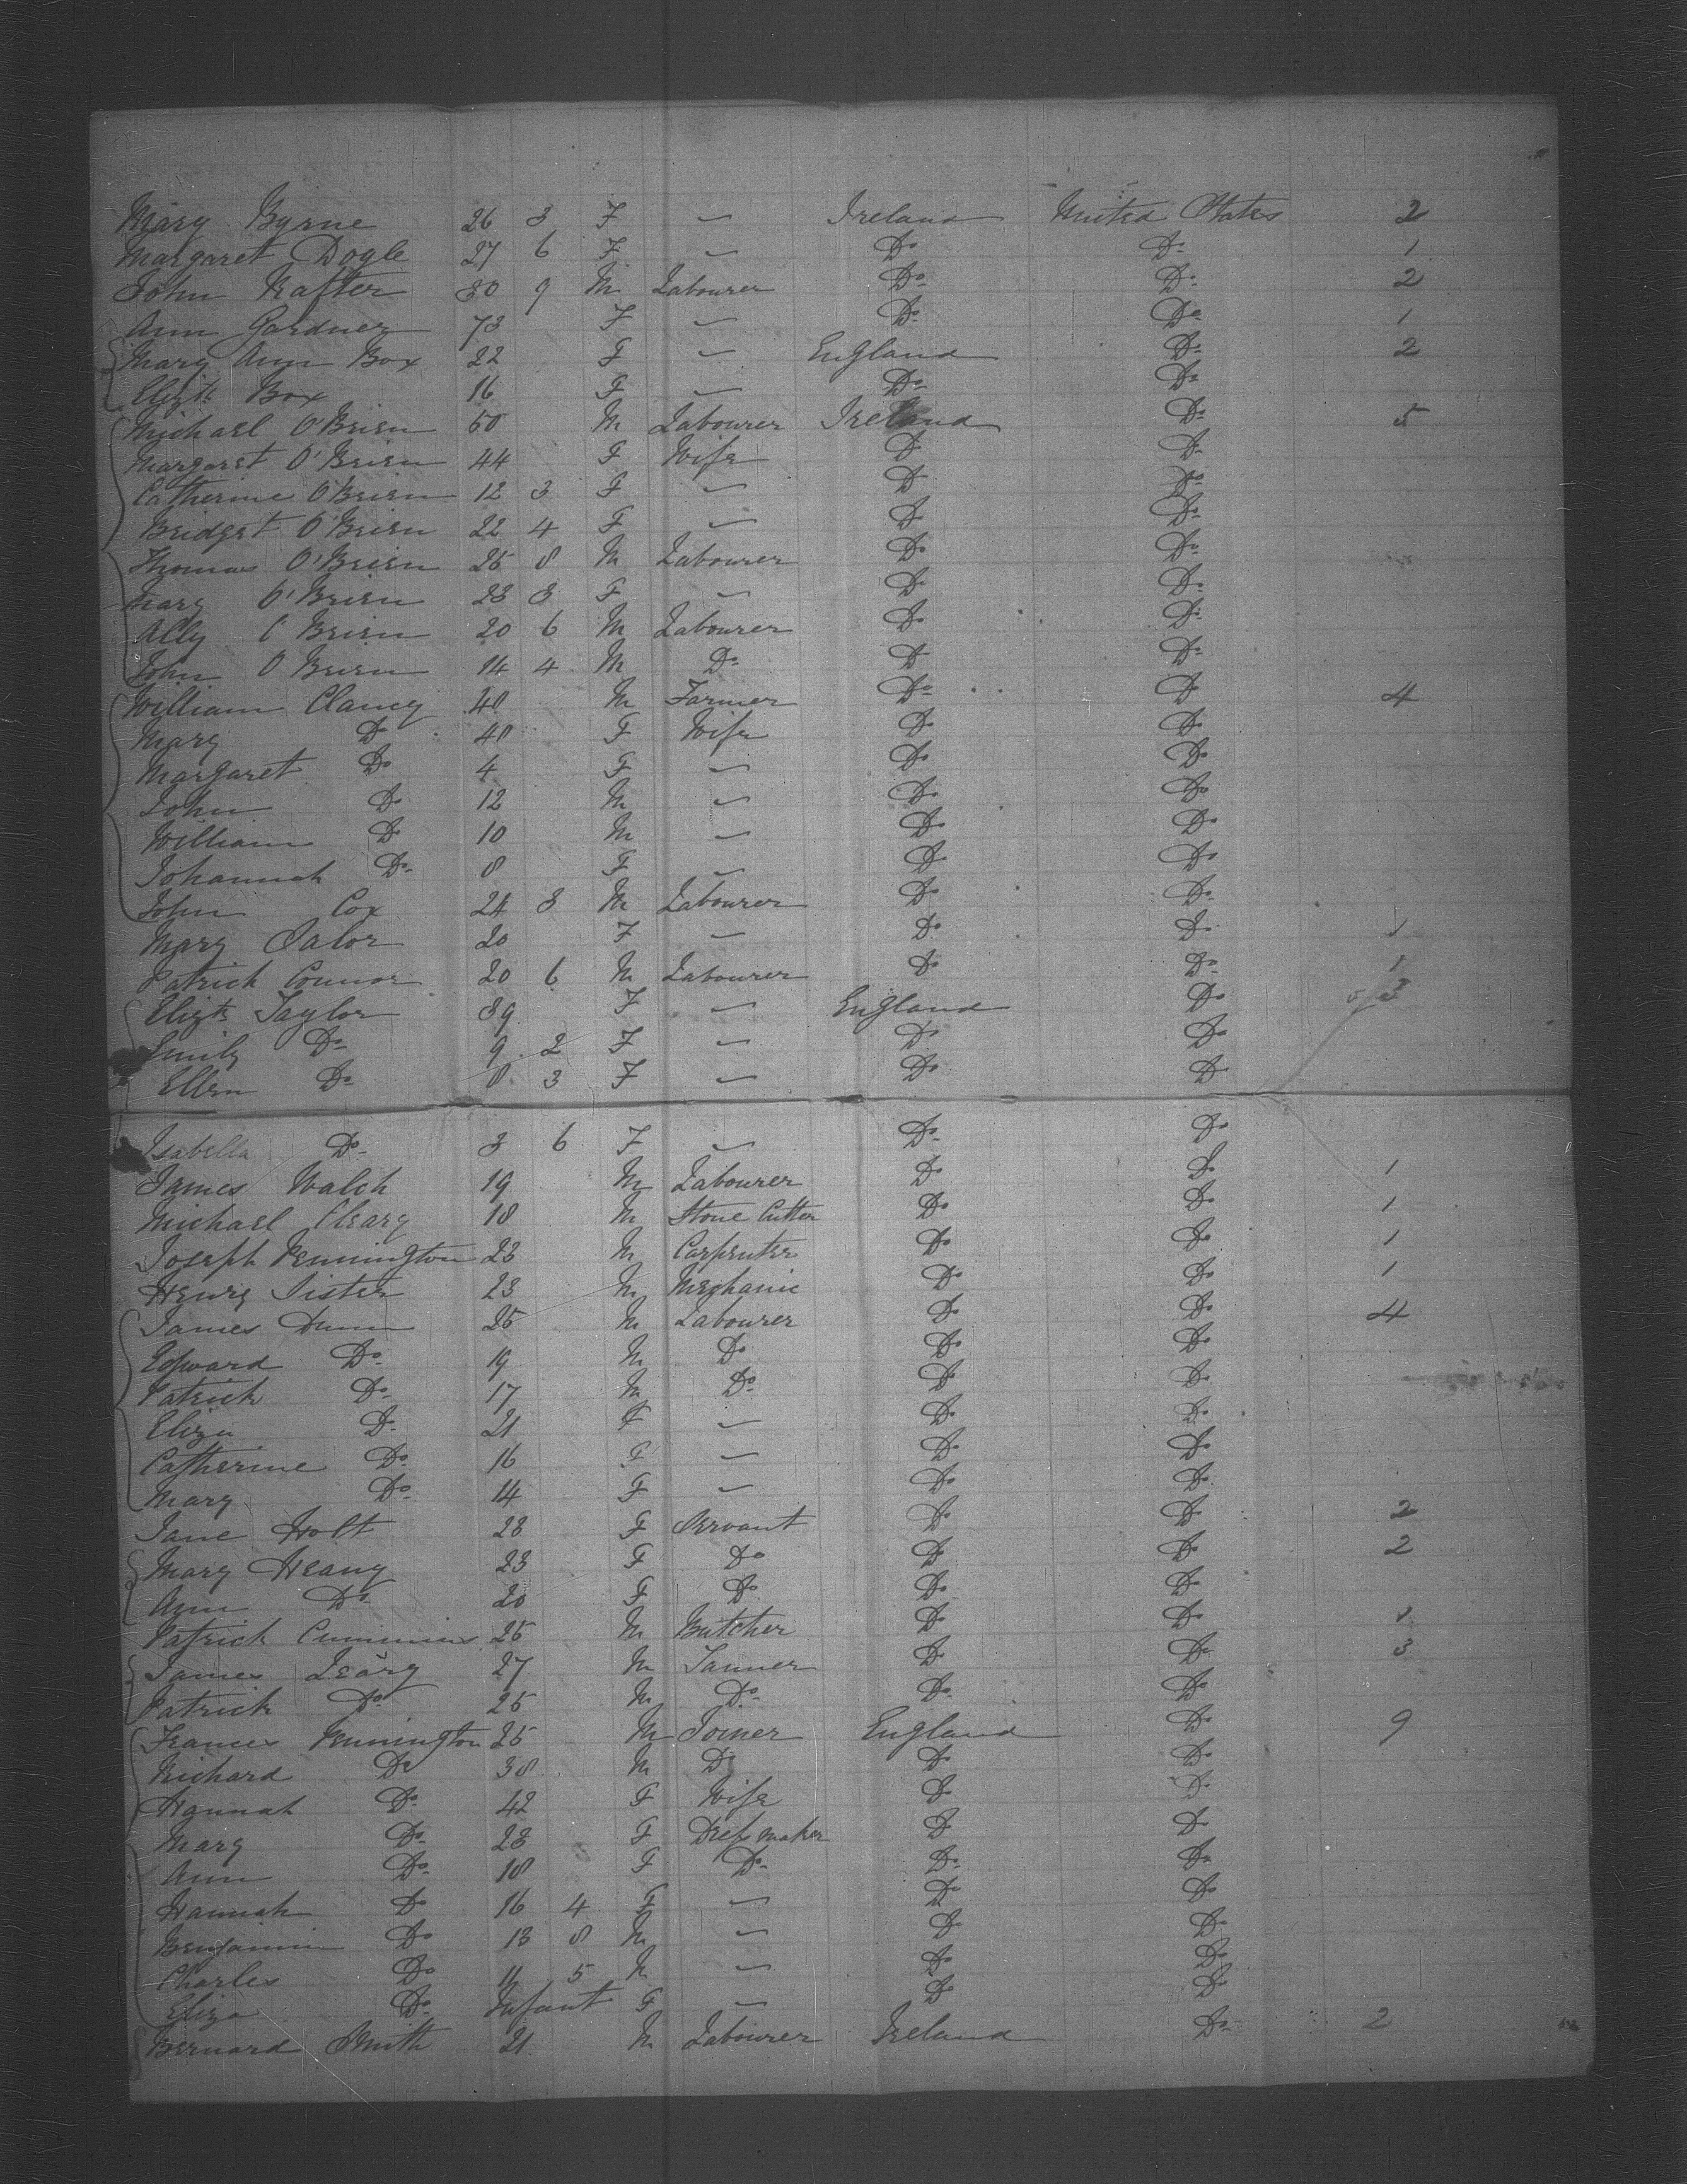 Mary Byrne 26 3 F — Ireland United States 2
Margaret Dogle 27 6 F — Do Do 1
John Rafter 30 9 M Labourer Do Do 2
Ann Gardner 73 F — Do Do 1
Mary Ann Box 22 F — England Do 2
Elizth Box 16 F — Do Do
Michael O'Brien 50 M Labourer Ireland Do 5
Margaret O'Brien 44 F Wife Do Do
Catherine O'Brien 12 3 F — Do Do
Bridget O'Brien 22 4 F — Do Do
Thomas O'Brien 25 8 M Labourer Do Do
Mary O'Brien 23 3 F — Do Do
Ally O'Brien 20 6 M Labourer Do Do
John O'Brien 14 4 M Do Do Do
William Clancy 48 M Farmer Do Do 4
Mary Do 48 F Wife Do Do
Margaret Do 4 F — Do Do
John Do 12 M — Do Do
William Do 10 M — Do Do
Johannah Do 8 F — Do Do
John Cox 24 3 M Labourer Do Do
Mary Salor 20 F — Do Do 1
Patrick Connor 20 6 M Labourer Do Do 1
Elizth Taylor 39 F — England Do
Emily Do 9 2 F — Do Do
Ellen Do 8 3 F — Do Do
Isabella Do 3 6 F — Do Do
James Walch 19 M Labourer Do Do 1
Michael Cleary 18 M Stone Cutter Do Do 1
Joseph Pennington 23 M Carpenter Do Do 1
Henry Sister 23 M Mechanic Do Do 1
James Dunn 25 M Labourer Do Do 4
Edward Do 19 M Do Do Do
Patrick Do 17 M Do Do Do
Eliza Do 21 F — Do Do
Catherine Do 16 F — Do Do
Mary Do 14 F — Do Do
Jane Holt 28 F Servant Do Do 2
Mary Heany 23 F Do Do Do 2
Ann Do 20 F Do Do Do
Patrick Cummins 25 M Butcher Do Do 1
James Leary 27 M Tanner Do Do 3
Patrick Do 25 M Do Do Do
Frances Pennington 25 M Joiner England Do 9
Richard Do 38 M Do Do Do
Hannah Do 42 F Wife Do Do
Mary Do 23 F Dress maker Do Do
Ann Do 18 F Do Do Do
Hannah Do 16 4 F — Do Do
Benjamin Do 13 8 M — Do Do
Charles Do 11 5 M — Do Do
Eliza Do Infant F — Do Do
Bernard Smith 21 M Labourer Ireland Do 2